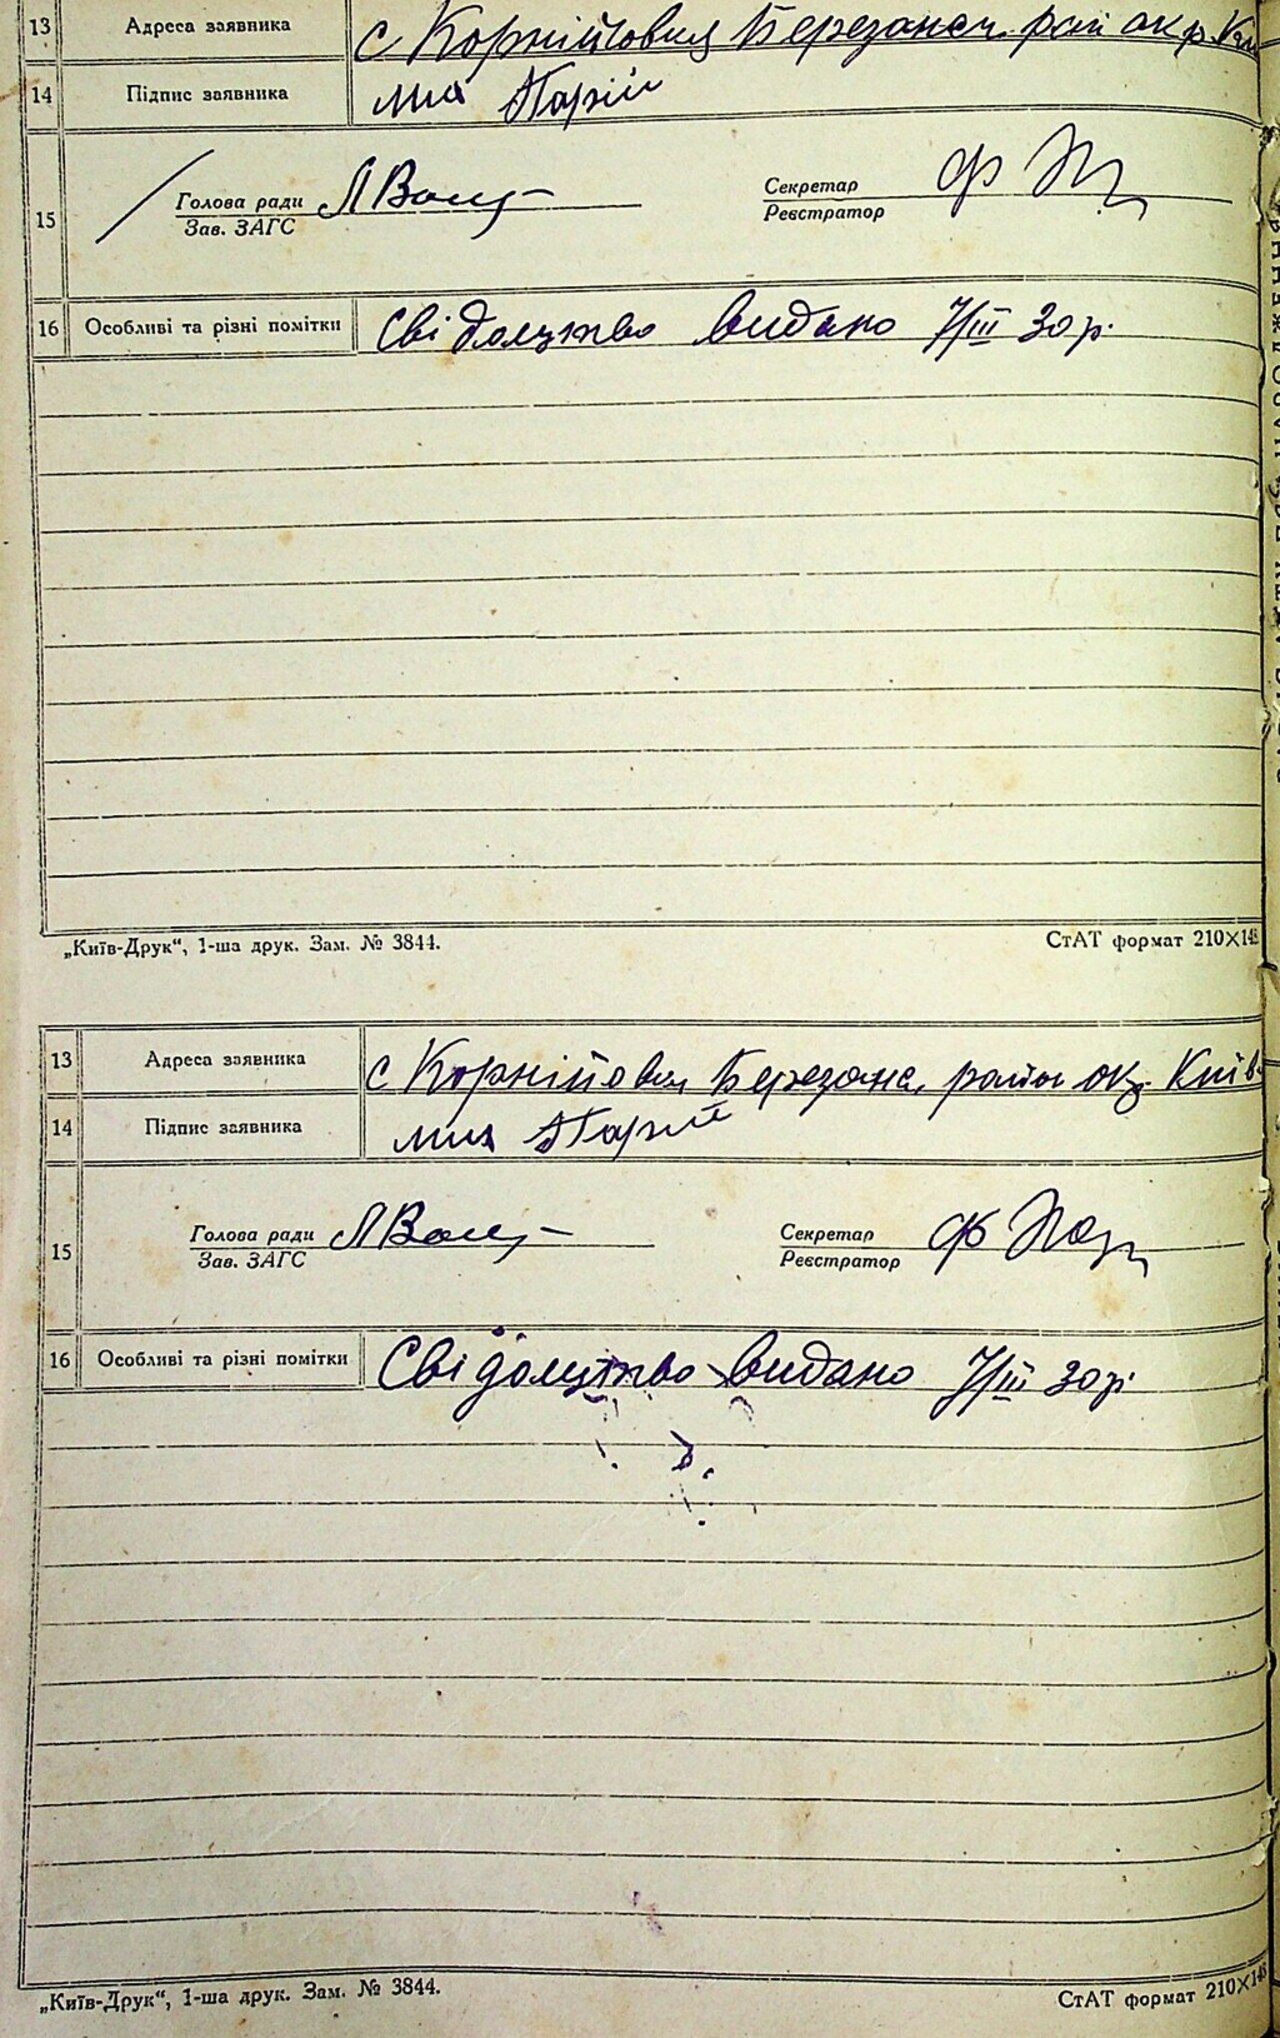 13 Адреса заявника с Корнійовка Березанск. рай окр. Ки
14 Підпис заявника Парій
15 Голова ради Секретар
Зав. ЗАГС Реєстратор
16 Особливі та різні помітки Свідоцтво видано 7/III 30 р.
„Київ-Друк“, 1-ша друк. Зам. № 3844. СтАТ формат 210×148
13 Адреса заявника с Корнійовка Березанс. район окр. Київ
14 Підпис заявника Парій
15 Голова ради Секретар
Зав. ЗАГС Реєстратор
16 Особливі та різні помітки Свідоцтво видано 7/III 30 р.
„Київ-Друк“, 1-ша друк. Зам. № 3844. СтАТ формат 210×148